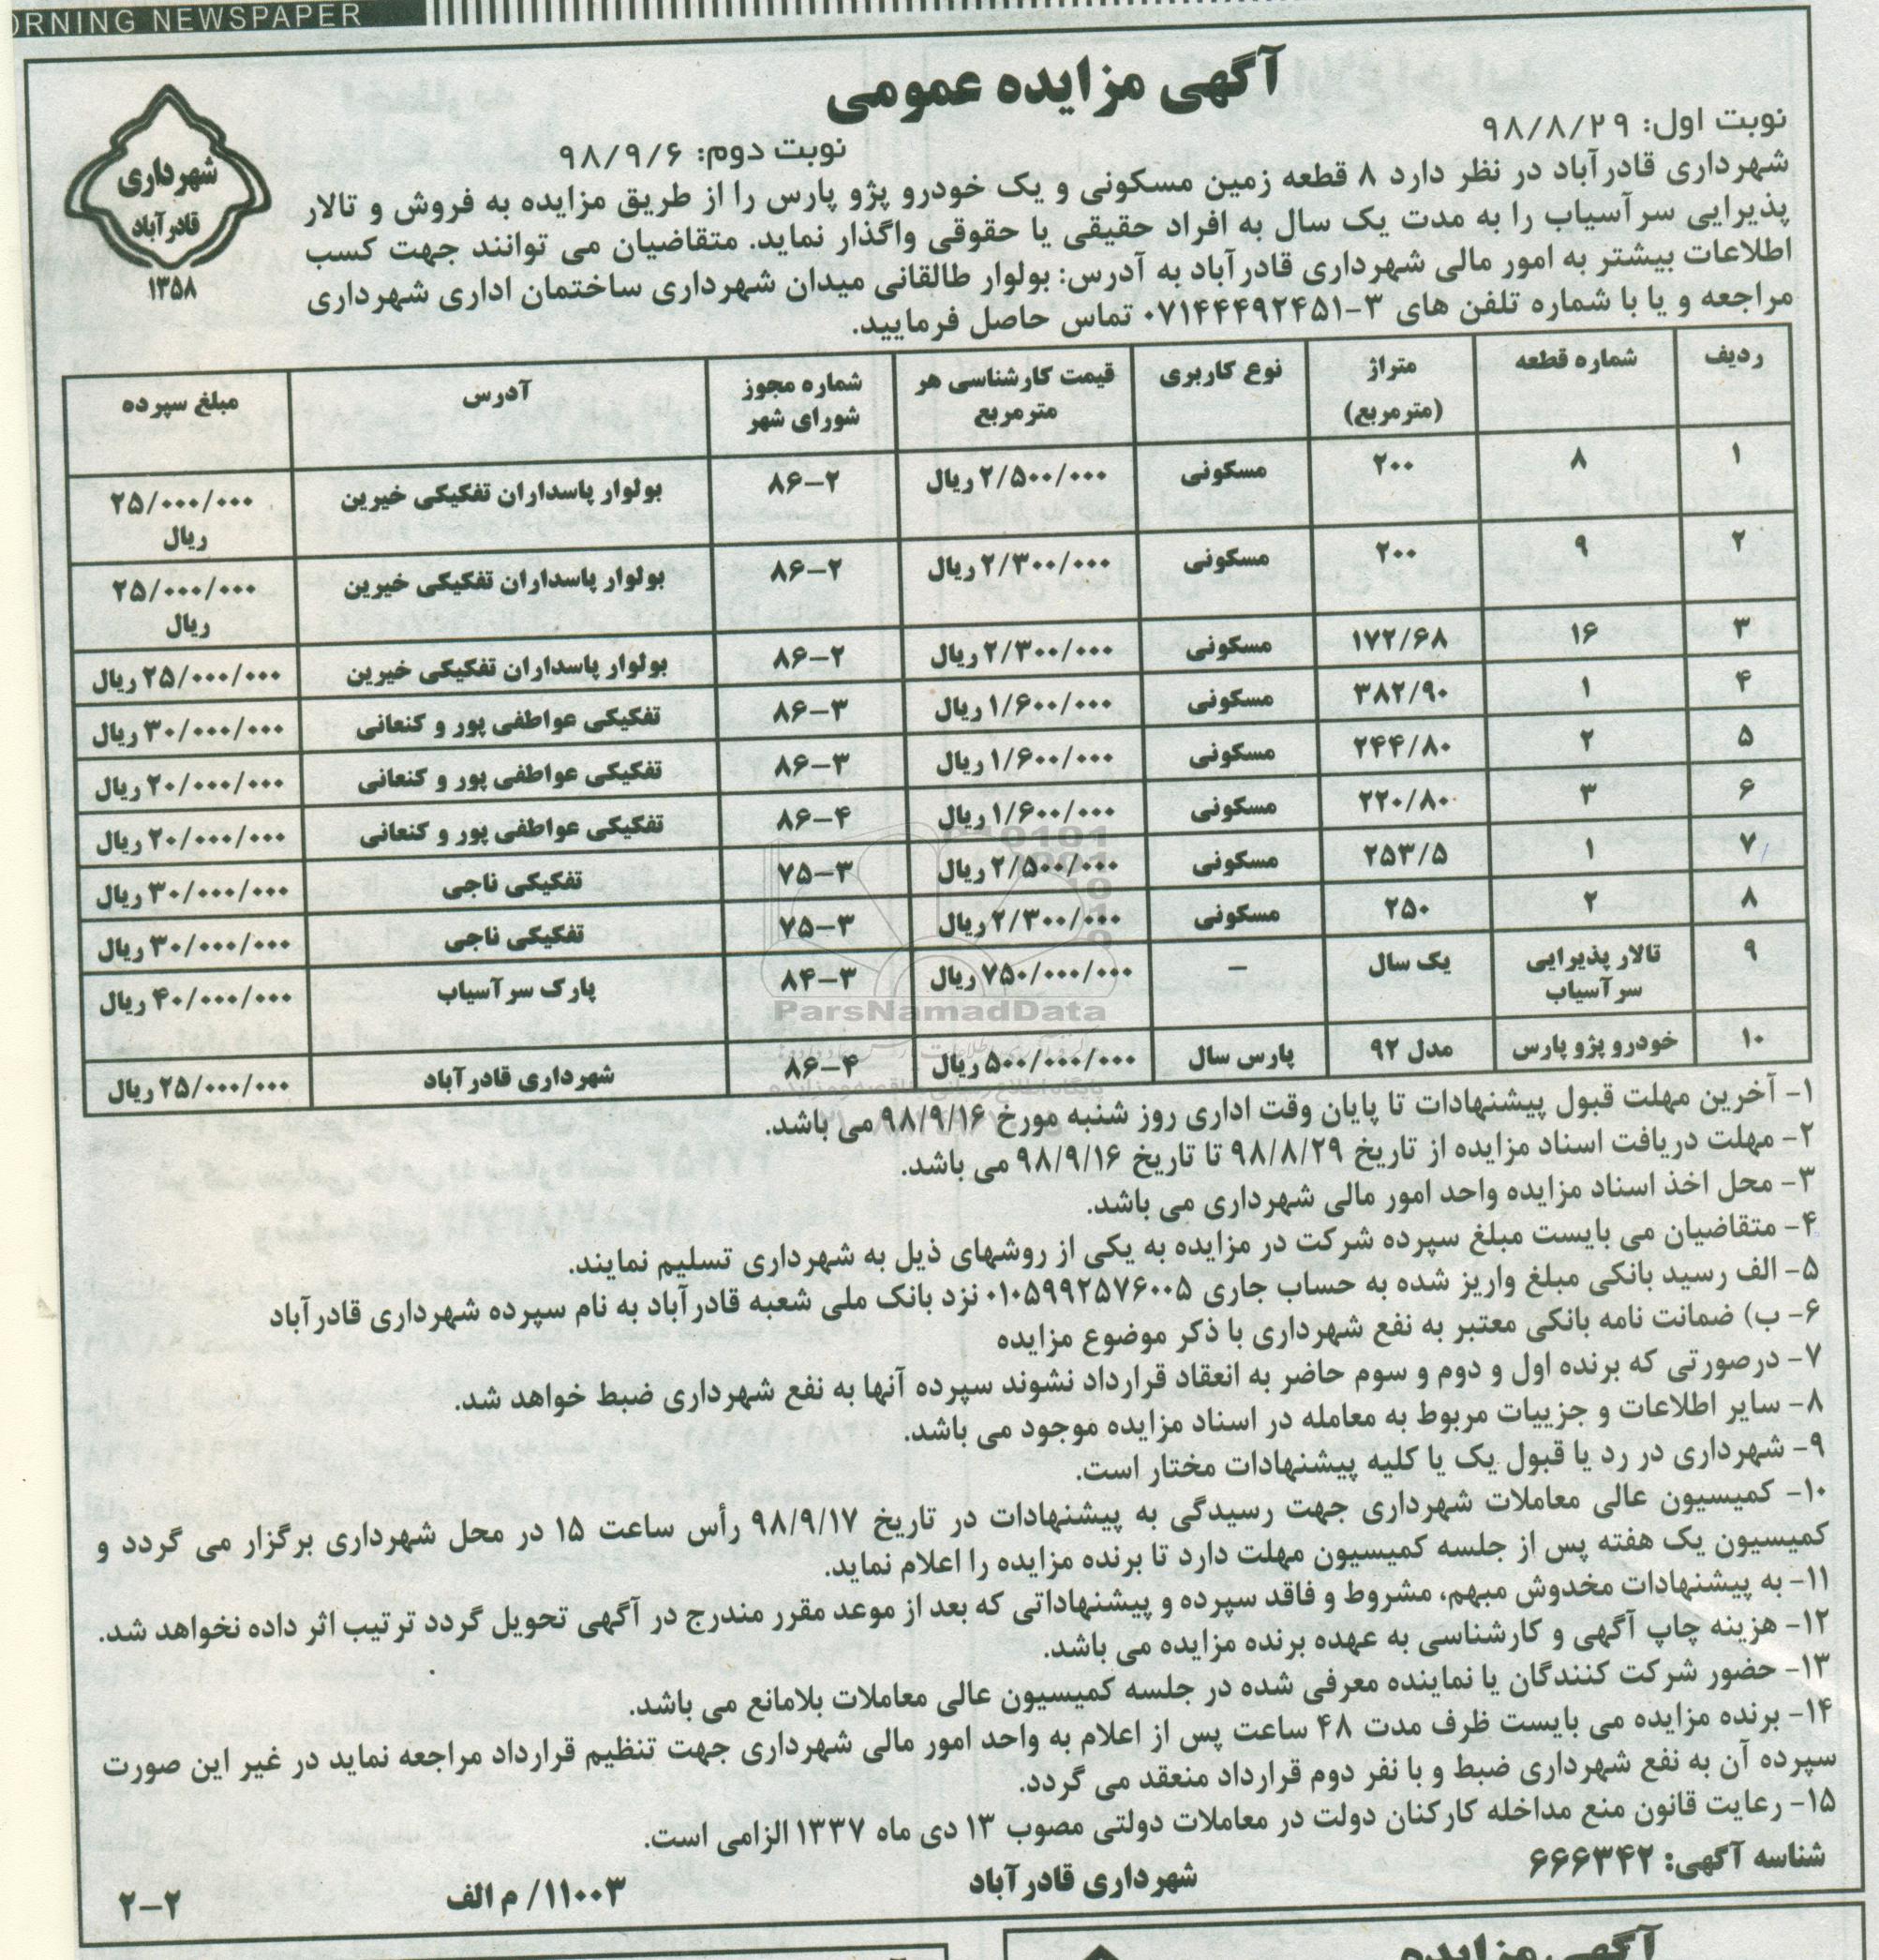 ORNING NEWSPAPER
آگهی مزایده عمومی
نوبت اول: ۹۸/۸/۲۹
نوبت دوم: ۹۸/۹/۶
شهرداری
قادرآباد
۱۳۵۸
شهرداری قادرآباد در نظر دارد ۸ قطعه زمین مسکونی و یک خودرو پژو پارس را از طریق مزایده به فروش و تالار
پذیرایی سرآسیاب را به مدت یک سال به افراد حقیقی یا حقوقی واگذار نماید. متقاضیان می توانند جهت کسب
اطلاعات بیشتر به امور مالی شهرداری قادرآباد به آدرس: بولوار طالقانی میدان شهرداری ساختمان اداری شهرداری
مراجعه و یا با شماره تلفن های ۳-۰۷۱۴۴۴۹۲۴۵۱ تماس حاصل فرمایید.
ردیف | شماره قطعه | متراژ (مترمربع) | نوع کاربری | قیمت کارشناسی هر مترمربع | شماره مجوز شورای شهر | آدرس | مبلغ سپرده
۱ | ۸ | ۲۰۰ | مسکونی | ۲/۵۰۰/۰۰۰ ریال | ۸۶-۲ | بولوار پاسداران تفکیکی خیرین | ۲۵/۰۰۰/۰۰۰ ریال
۲ | ۹ | ۲۰۰ | مسکونی | ۲/۳۰۰/۰۰۰ ریال | ۸۶-۲ | بولوار پاسداران تفکیکی خیرین | ۲۵/۰۰۰/۰۰۰ ریال
۳ | ۱۶ | ۱۷۲/۶۸ | مسکونی | ۲/۳۰۰/۰۰۰ ریال | ۸۶-۲ | بولوار پاسداران تفکیکی خیرین | ۲۵/۰۰۰/۰۰۰ ریال
۴ | ۱ | ۳۸۲/۹۰ | مسکونی | ۱/۶۰۰/۰۰۰ ریال | ۸۶-۳ | تفکیکی عواطفی پور و کنعانی | ۳۰/۰۰۰/۰۰۰ ریال
۵ | ۲ | ۲۴۴/۸۰ | مسکونی | ۱/۶۰۰/۰۰۰ ریال | ۸۶-۳ | تفکیکی عواطفی پور و کنعانی | ۲۰/۰۰۰/۰۰۰ ریال
۶ | ۳ | ۲۲۰/۸۰ | مسکونی | ۱/۶۰۰/۰۰۰ ریال | ۸۶-۴ | تفکیکی عواطفی پور و کنعانی | ۲۰/۰۰۰/۰۰۰ ریال
۷ | ۱ | ۲۵۳/۵ | مسکونی | ۲/۵۰۰/۰۰۰ ریال | ۷۵-۳ | تفکیکی ناجی | ۳۰/۰۰۰/۰۰۰ ریال
۸ | ۲ | ۲۵۰ | مسکونی | ۲/۳۰۰/۰۰۰ ریال | ۷۵-۳ | تفکیکی ناجی | ۳۰/۰۰۰/۰۰۰ ریال
۹ | تالار پذیرایی سرآسیاب | یک سال | – | ۷۵۰/۰۰۰/۰۰۰ ریال | ۸۴-۳ | پارک سرآسیاب | ۴۰/۰۰۰/۰۰۰ ریال
۱۰ | خودرو پژو پارس | مدل ۹۲ | پارس سال | ۵۰۰/۰۰۰/۰۰۰ ریال | ۸۶-۴ | شهرداری قادرآباد | ۲۵/۰۰۰/۰۰۰ ریال
ParsNamadData
۱- آخرین مهلت قبول پیشنهادات تا پایان وقت اداری روز شنبه مورخ ۹۸/۹/۱۶ می باشد.
۲- مهلت دریافت اسناد مزایده از تاریخ ۹۸/۸/۲۹ تا تاریخ ۹۸/۹/۱۶ می باشد.
۳- محل اخذ اسناد مزایده واحد امور مالی شهرداری می باشد.
۴- متقاضیان می بایست مبلغ سپرده شرکت در مزایده به یکی از روشهای ذیل به شهرداری تسلیم نمایند.
۵- الف رسید بانکی مبلغ واریز شده به حساب جاری ۰۱۰۵۹۹۲۵۷۶۰۰۵ نزد بانک ملی شعبه قادرآباد به نام سپرده شهرداری قادرآباد
۶- ب) ضمانت نامه بانکی معتبر به نفع شهرداری با ذکر موضوع مزایده
۷- درصورتی که برنده اول و دوم و سوم حاضر به انعقاد قرارداد نشوند سپرده آنها به نفع شهرداری ضبط خواهد شد.
۸- سایر اطلاعات و جزییات مربوط به معامله در اسناد مزایده موجود می باشد.
۹- شهرداری در رد یا قبول یک یا کلیه پیشنهادات مختار است.
۱۰- کمیسیون عالی معاملات شهرداری جهت رسیدگی به پیشنهادات در تاریخ ۹۸/۹/۱۷ رأس ساعت ۱۵ در محل شهرداری برگزار می گردد و
کمیسیون یک هفته پس از جلسه کمیسیون مهلت دارد تا برنده مزایده را اعلام نماید.
۱۱- به پیشنهادات مخدوش مبهم، مشروط و فاقد سپرده و پیشنهاداتی که بعد از موعد مقرر مندرج در آگهی تحویل گردد ترتیب اثر داده نخواهد شد.
۱۲- هزینه چاپ آگهی و کارشناسی به عهده برنده مزایده می باشد.
۱۳- حضور شرکت کنندگان یا نماینده معرفی شده در جلسه کمیسیون عالی معاملات بلامانع می باشد.
۱۴- برنده مزایده می بایست ظرف مدت ۴۸ ساعت پس از اعلام به واحد امور مالی شهرداری جهت تنظیم قرارداد مراجعه نماید در غیر این صورت
سپرده آن به نفع شهرداری ضبط و با نفر دوم قرارداد منعقد می گردد.
۱۵- رعایت قانون منع مداخله کارکنان دولت در معاملات دولتی مصوب ۱۳ دی ماه ۱۳۳۷ الزامی است.
شناسه آگهی: ۶۶۶۳۴۲
شهرداری قادرآباد
۱۱۰۰۳/ م الف
۲-۲
آگهی مزایده